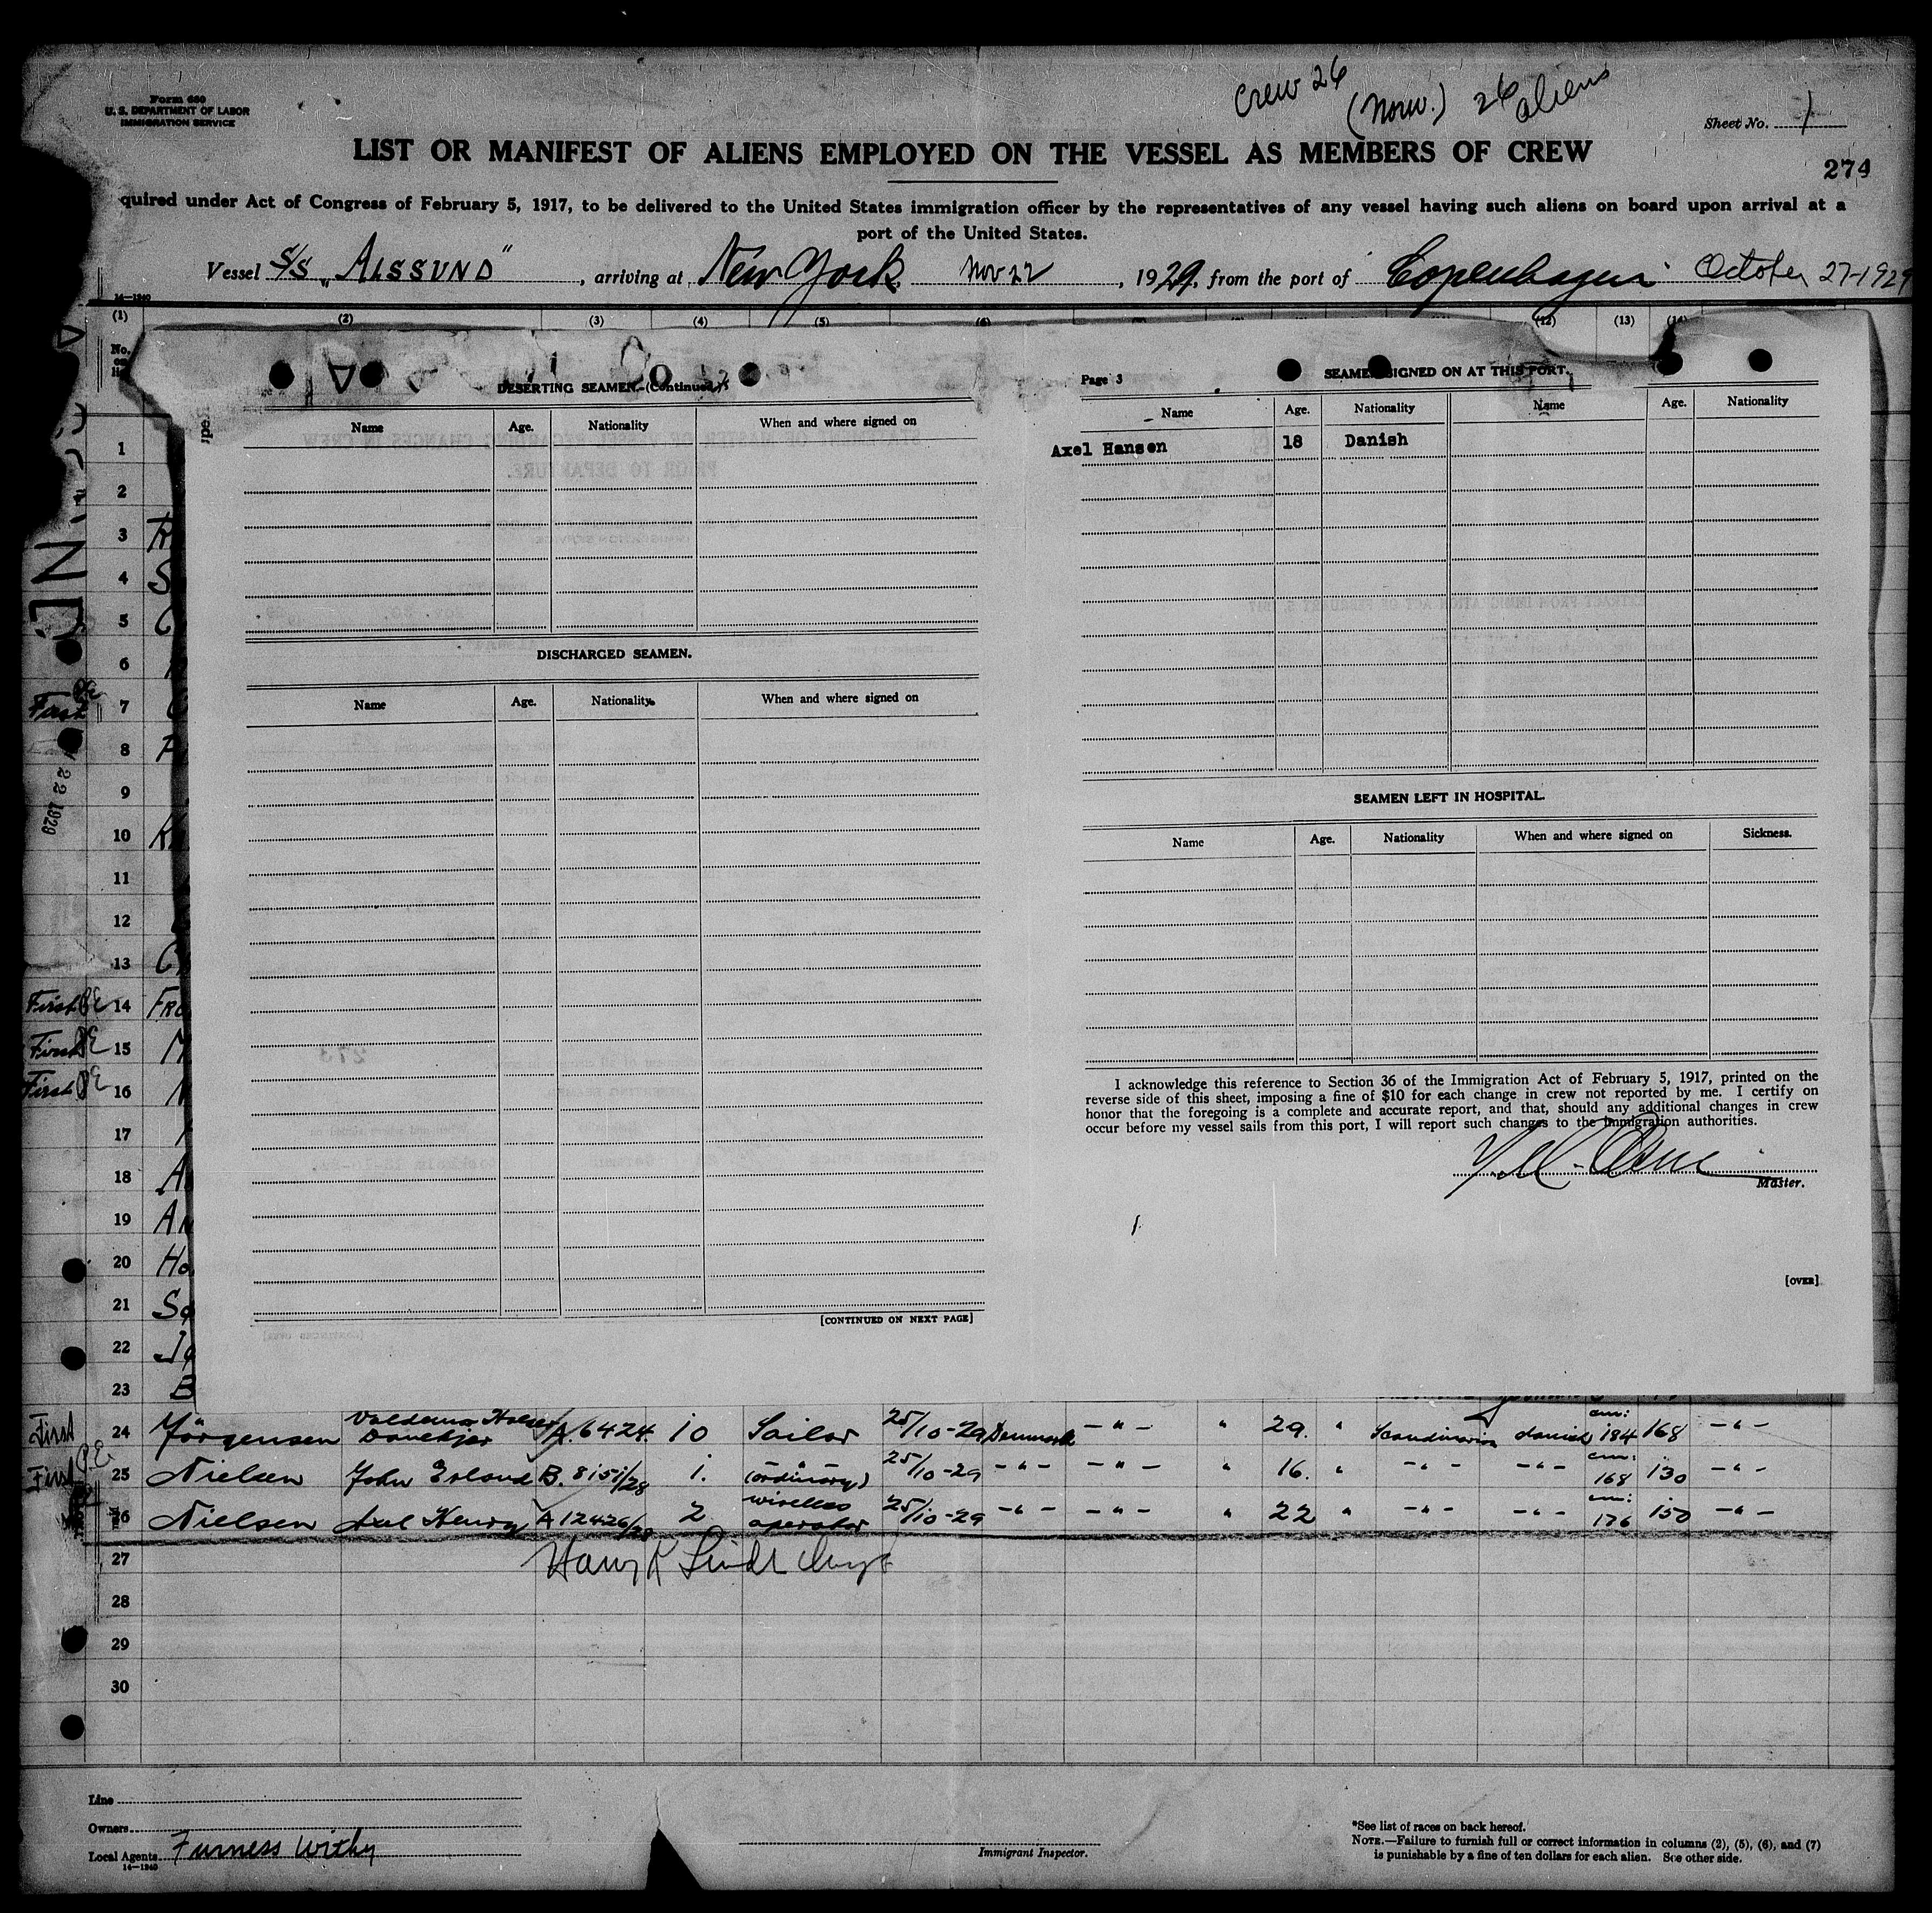 Form 680
U. S. DEPARTMENT OF LABOR
IMMIGRATION SERVICE
Crew 26
(Norw.) 26 aliens
Sheet No. 1
LIST OR MANIFEST OF ALIENS EMPLOYED ON THE VESSEL AS MEMBERS OF CREW
274
quired under Act of Congress of February 5, 1917, to be delivered to the United States immigration officer by the representatives of any vessel having such aliens on board upon arrival at a
port of the United States.
Vessel S/S "ALSSUND", arriving at New York Nov 22, 1929, from the port of Copenhagen October 27-1929
14—1240
(1) (2) (3) (4) (5) (6) (12) (13) (14)
No.
DESERTING SEAMEN—(Continued).
Name Age. Nationality When and where signed on
DISCHARGED SEAMEN.
Name Age. Nationality When and where signed on
[CONTINUED ON NEXT PAGE]
Page 3
SEAMEN SIGNED ON AT THIS PORT.
Name Age. Nationality Name Age. Nationality
Axel Hansen 18 Danish
SEAMEN LEFT IN HOSPITAL.
Name Age. Nationality When and where signed on Sickness.
I acknowledge this reference to Section 36 of the Immigration Act of February 5, 1917, printed on the
reverse side of this sheet, imposing a fine of $10 for each change in crew not reported by me. I certify on
honor that the foregoing is a complete and accurate report, and that, should any additional changes in crew
occur before my vessel sails from this port, I will report such changes to the immigration authorities.
Master.
[OVER]
1
2
3
4 S
5 C
6
First 7
8
9
10 K
11
12
13 C
First 14 FRO
First 15 M
First 16
17
18 A
19 AN
20 Ho
21 Sø
22 Jo
23 B
2 2 1929
First 24 Jörgensen Valdemar Holger A.6424. 10 Sailor 25/10-29 Denmark —"— " 29. " Scandinavian danish cm: 184 168 —"—
First 25 Nielsen John Erland B. 8151/28 1. (ordinary) 25/10-29 —"— —"— " 16. " —"— —"— cm: 168 130 —"—
26 Nielsen Axel Henry A 12426/28 2 wireless operator 25/10-29 —"— —"— " 22 " —"— —"— cm: 176 150 —"—
27
28
29
30
Line
Owners
Local Agents Furness Withy
14—1240
Immigrant Inspector.
*See list of races on back hereof.
NOTE.—Failure to furnish full or correct information in columns (2), (5), (6), and (7)
is punishable by a fine of ten dollars for each alien. See other side.